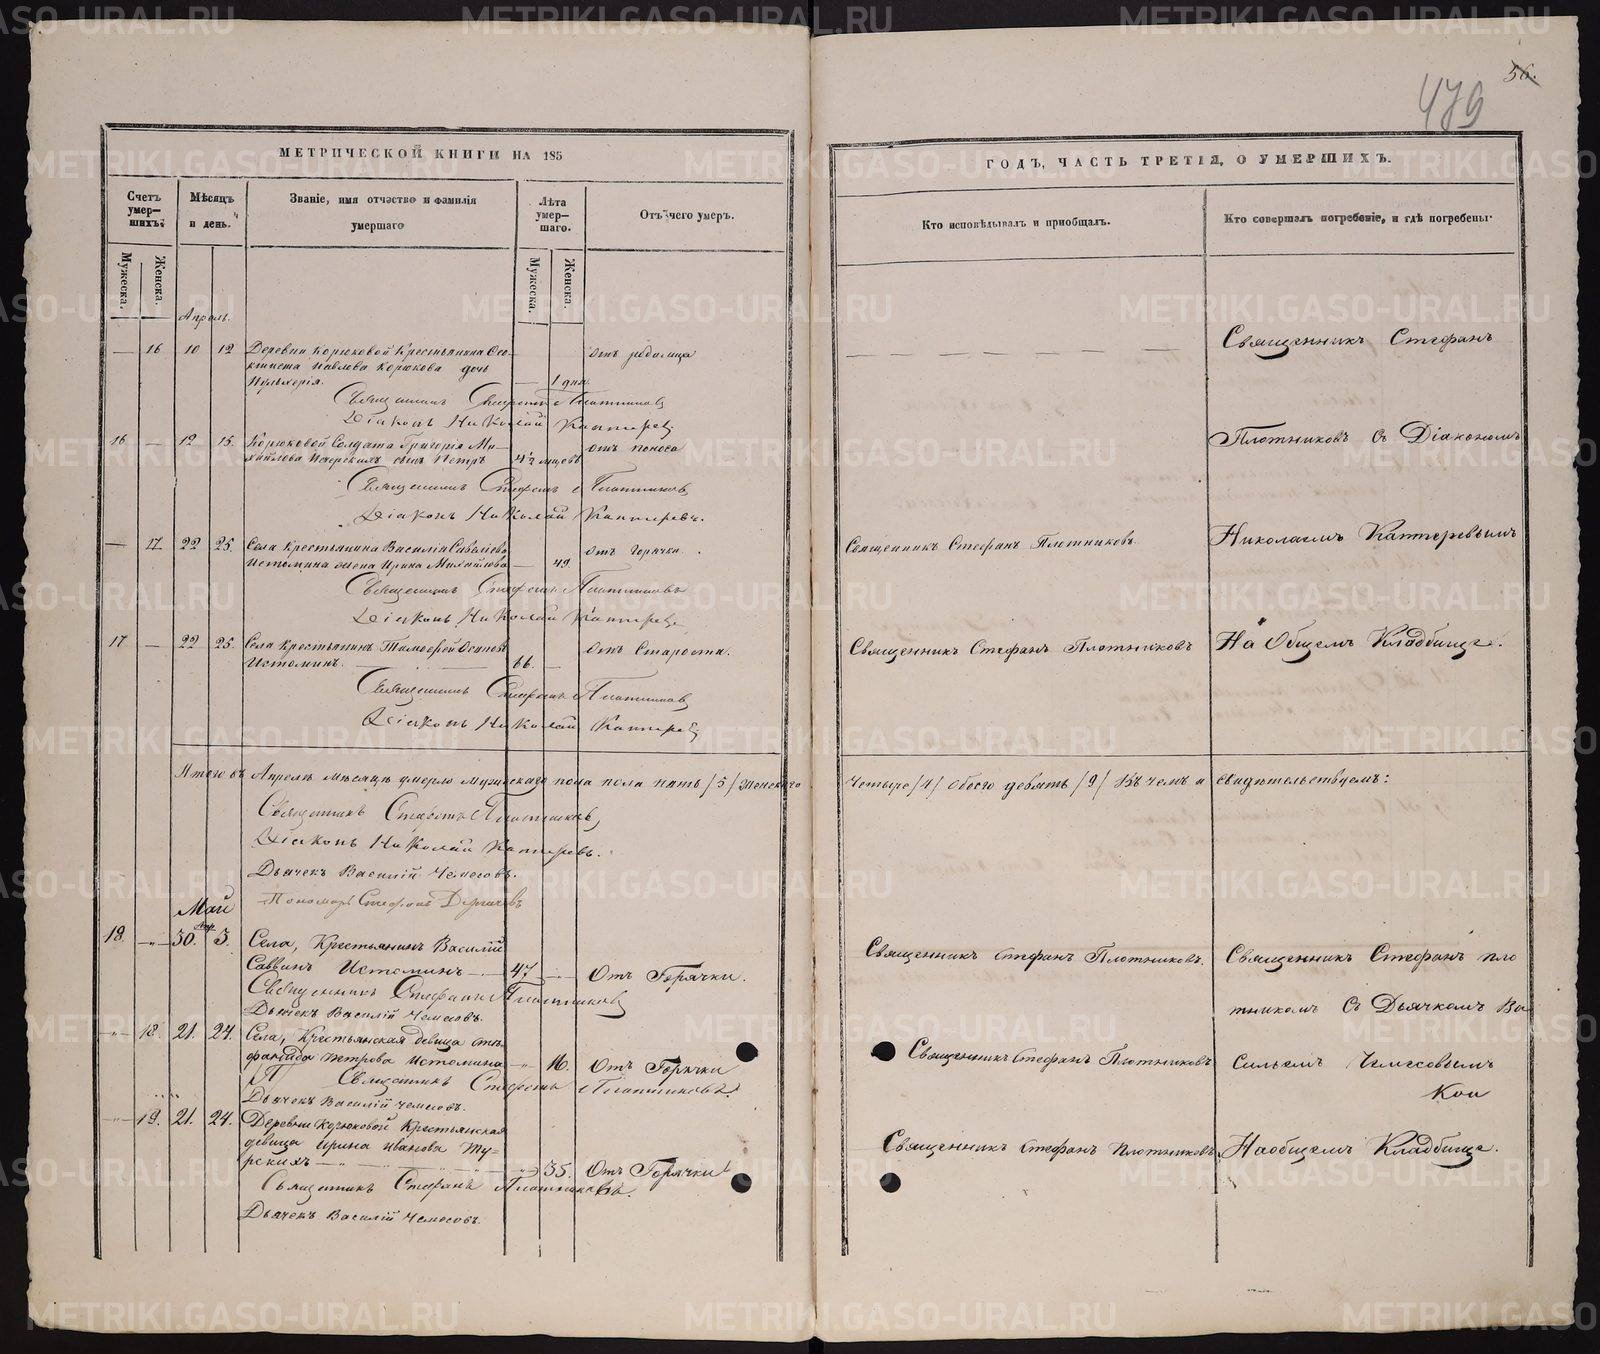 56.
479
МЕТРИЧЕСКОЙ КНИГИ НА 185
ГОДЪ, ЧАСТЬ ТРЕТІЯ, О УМЕРШИХЪ.
Счетъ умер-шихъ.
Мѣсяцъ и день.
Званіе, имя отчество и фамилія умершаго
Лѣта умер-шаго.
Отъ чего умеръ.
Кто исповѣдывалъ и пріобщалъ.
Кто совершалъ погребеніе, и гдѣ погребены.
Мужеска.
Женска.
Мужеска.
Женска.
Апрель.
— 16 10 12 Деревни Корюковой Крестьянина
Павлова Корюкова дочь
Пульхерія. — 1 дня. Отъ родимца
Священникъ Стефанъ Плотниковъ
Діаконъ Николай Каптеревъ
16 — 12 15. Корюковой Солдата Григорія Ми-
хайлова сынъ Петръ 4½ Отъ поноса
Священникъ Стефанъ Плотниковъ
Діаконъ Николай Каптеревъ.
— 17 22 25. Села Крестьянина Василія
Истомина жена Ирина Михайлова — 49. Отъ горячки.
Священникъ Стефанъ Плотниковъ
Діаконъ Николай Каптеревъ
17 — 22 25. Села Крестьянинъ Тимофей Осиповъ
Истоминъ. — 66. — Отъ Старости.
Священникъ Стефанъ Плотниковъ
Діаконъ Николай Каптеревъ
Итого въ Апрелѣ мѣсяцѣ умерло мужескаго пола пола пять /5/ женскаго
Священникъ Стефанъ Плотниковъ,
Діаконъ Николай Каптеревъ.
Дьячекъ Василій Чемесовъ.
Пономарь Стефанъ
Май
18. — 30. Апр 3. Села, Крестьянинъ Василій
Саввинъ Истоминъ — 47 — Отъ Горячки.
Священникъ Стефанъ Плотниковъ
Дьячекъ Василій Чемесовъ.
— 18. 21. 24. Села, Крестьянская девица Сте-
фанида Петрова Истомина — 16. Отъ Горячки
Священникъ Стефанъ Плотниковъ.
Дьячекъ Василій Чемесовъ.
— 19. 21. 24. Деревни Корюковой Крестьянская
девица Ирина Иванова
— 35. Отъ Горячки
Священникъ Стефанъ Плотниковъ.
Дьячекъ Василій Чемесовъ.
Священникъ Стефанъ
Плотниковъ съ Діакономъ
Священникъ Стефанъ Плотниковъ.
Николаемъ Каптеревымъ
Священникъ Стефанъ Плотниковъ
На Общемъ Кладбище.
Четыре /4/ обоего девять /9/ Въ чемъ и свидѣтельствуемъ:
Священникъ Стефанъ Плотниковъ.
Священникъ Стефанъ Пло
тниковъ Съ Дьячкомъ Ва
Священникъ Стефанъ Плотниковъ
сильемъ Чемесовымъ
Священникъ Стефанъ Плотниковъ
На общемъ Кладбище.
METRIKI.GASO-URAL.RU